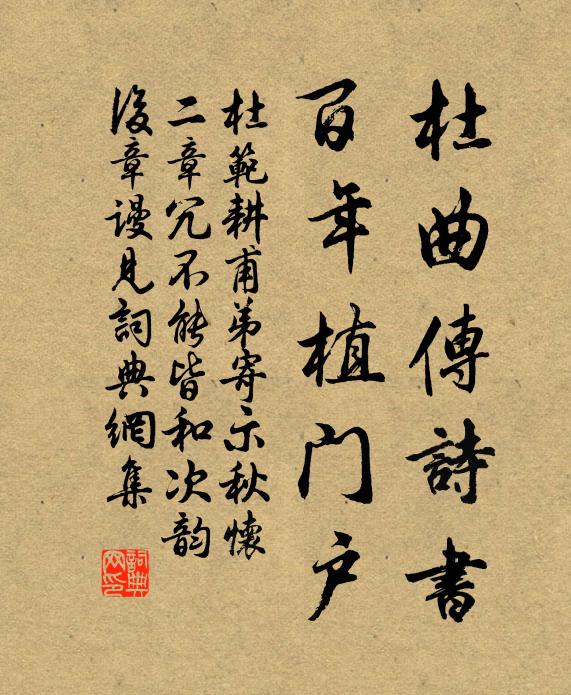 杜曲傳詩書
百年植门户
杜範耕甫弟寄示秋懷
二章冗不能皆和次韵
後章謾見詞典網集
詞典网印